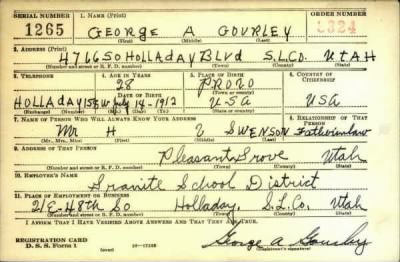 SERIAL NUMBER 1. NAME (Print) ORDER NUMBER
1265 GEORGE A GOURLEY 1324
(First) (Middle) (Last)
2. ADDRESS (Print)
4766 SO HOLLADAY BLVD S.L.CO. UTAH
(Number and street or R. F. D. number) (Town) (County) (State)
3. TELEPHONE 4. AGE IN YEARS 5. PLACE OF BIRTH 6. COUNTRY OF CITIZENSHIP
28 PROVO
DATE OF BIRTH (Town or county)
HOLLADAY July 14-1912 USA USA
(Exchange) (Number) (Mo.) (Day) (Yr.) (State or country)
7. NAME OF PERSON WHO WILL ALWAYS KNOW YOUR ADDRESS 8. RELATIONSHIP OF THAT PERSON
Mr H SWENSON Fatherinlaw
(Mr., Mrs., Miss) (First) (Middle) (Last)
9. ADDRESS OF THAT PERSON
Pleasant Grove Utah
(Number and street or R. F. D. number) (Town) (County) (State)
10. EMPLOYER'S NAME
Granite School District
11. PLACE OF EMPLOYMENT OR BUSINESS
21 E. 48th So Holladay. S.L.Co. Utah
(Number and street or R. F. D. number) (Town) (County) (State)
I AFFIRM THAT I HAVE VERIFIED ABOVE ANSWERS AND THAT THEY ARE TRUE.
REGISTRATION CARD
D. S. S. Form 1 George A Gourley
(Registrant's signature)